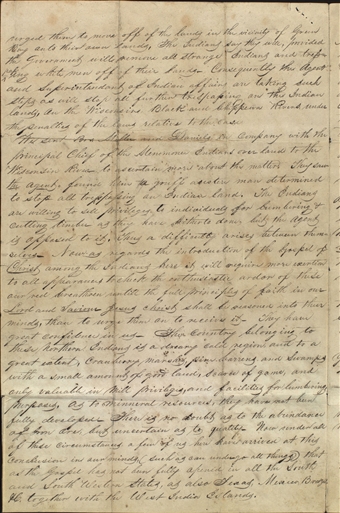 urged them to move off of the lands in the vicinity of Grand
Bay onto their own lands. The Indians say they will, provided
the Government will remove all strange Indians and tresp-
assing white men off of their lands. Consequently the Agent
and Superintendant of Indian affairs are taking such
steps as will stop all further trespassing on the Indian
lands, on the Wisconsin, Black and Chippewa Rivers under
the penalties of the laws relative to the case
We sent Bros in company with the
principal Chief of the Menomine Indians over land to the
Wisconsin River to ascertain more about the matter. They saw
the agent, found him a man determined
to stop all trespassing on Indian Land. The Indians
are willing to sell privileges to individuals for lumbering &
cutting timber as they have hitherto done but the Agent
is opposed to it. Thus a difficulty arises between them-
selves. Now as regards the introduction of the Gospel of
Christ among the Indians here it will require more exertion
to all appearance to check the enthusiastic ardor of these
our red breathren until the full principles of faith in our
Lord and Saviour Jesus Christ shall be reasoned into their
minds, than to urge them on to receive it. They have
great confidence in us. The Country belonging to
these northern Indians is a dreary cold region and to a
great extent, Cranberry marshes, pine barrens and swamps
with a small amount of good lands, scarce of game, and
only valuable in Mill Privileges and facilities for lumbering
purposes. As to mineral resources they have not been
fully developed. There is no doubt as to the abundance
of Iron Ore, but uncertain as to quality. Now under all
of these circumstances a few of us here have arrived at this
conclusion in our minds, (such as can undergo all things) that
as the Gospel has not been fully opened in all the South
and South Western States, as also Texas, Mexico, Brazil
&c. together with the West India Islands.